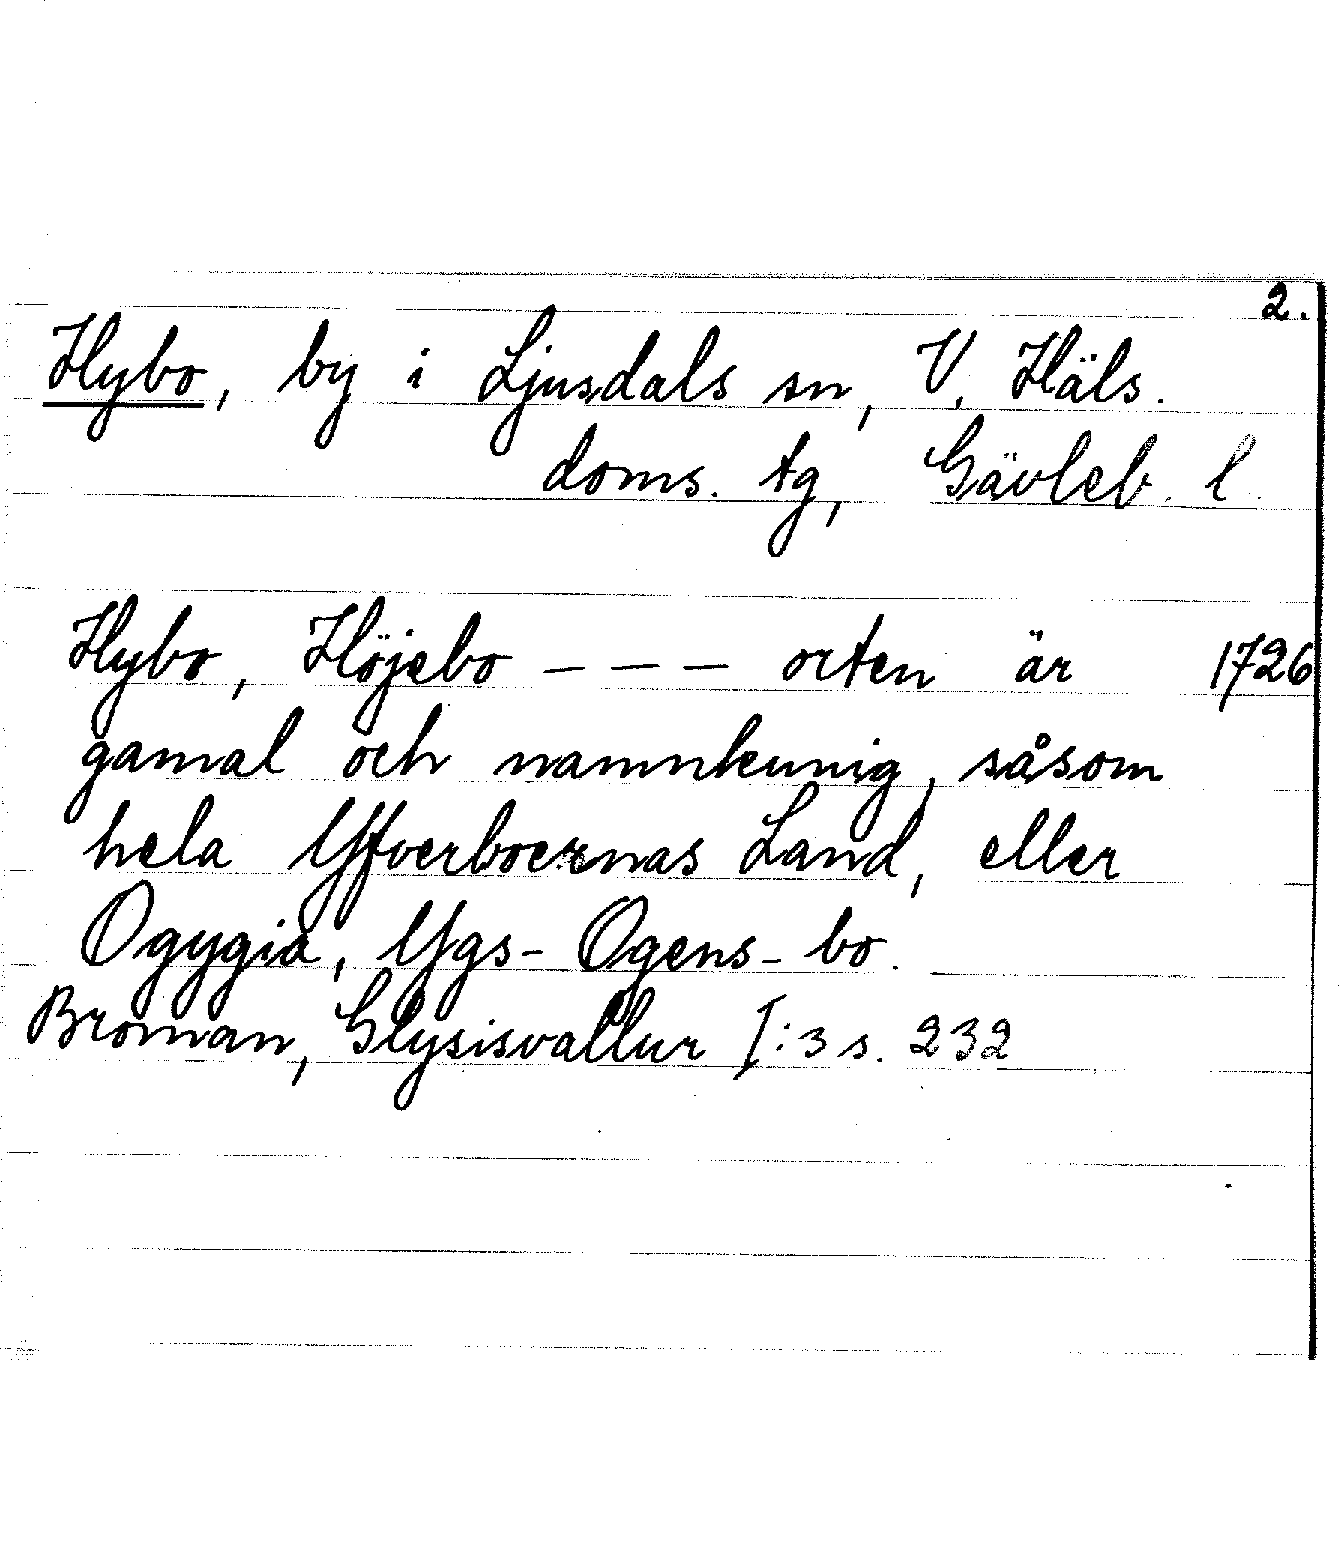 2.
Hybo, by i Ljusdals sn, V. Häls.
doms. tg, Gävleb. l.
Hybo, Höjebo - - - orten är 1726
gamal och namnkunig, såsom
hela Yfverboernas Land, eller
Ogygia, Ygs- Ogens- bo.
Broman, Glysisvallur I:3 s. 232